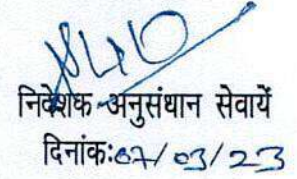 निदेशक अनुसंधान सेवायें
दिनांक:07/03/23